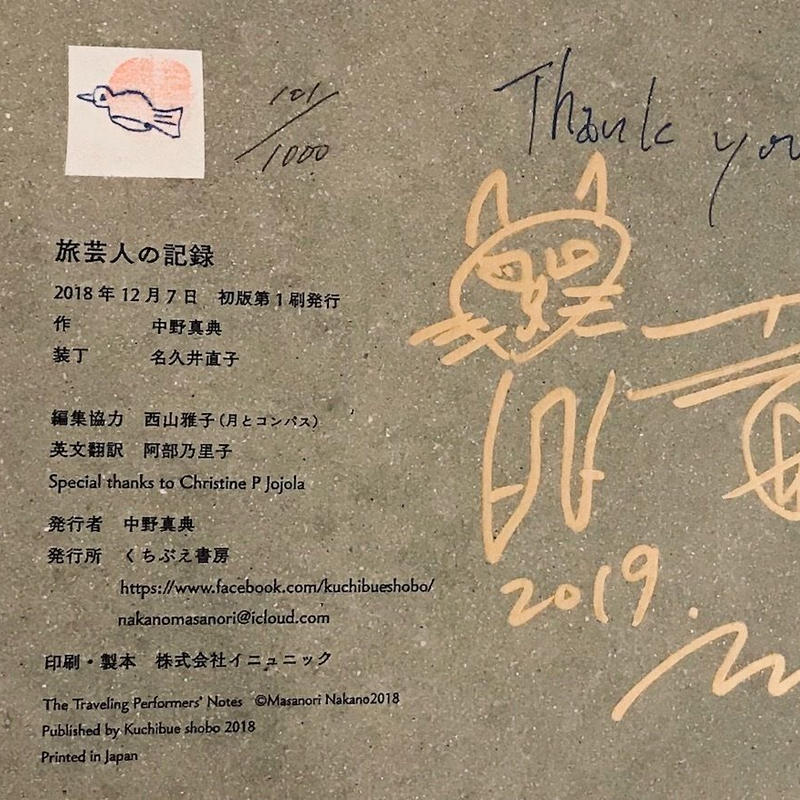 101/1000
Thank you
旅芸人の記録
2018年12月7日　初版第1刷発行
作　中野真典
装丁　名久井直子
編集協力　西山雅子(月とコンパス)
英文翻訳　阿部乃里子
Special thanks to Christine P Jojola
発行者　中野真典
発行所　くちぶえ書房
https://www.facebook.com/kuchibueshobo/
nakanomasanori@icloud.com
印刷・製本　株式会社イニュニック
The Traveling Performers' Notes ©Masanori Nakano2018
Published by Kuchibue shobo 2018
Printed in Japan
2019.